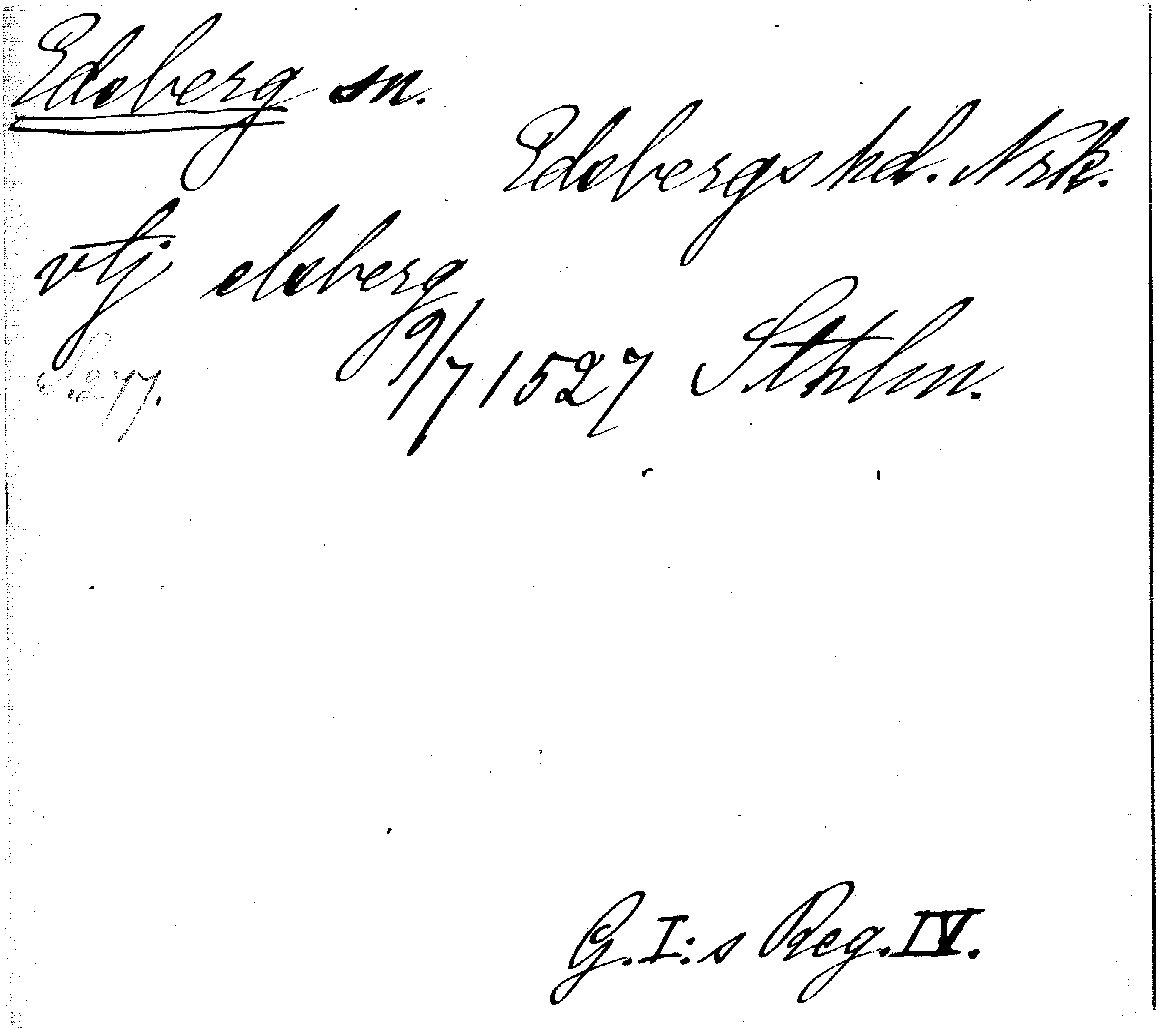 Edsberg sn.
Edsbergs hd. Nrk.
vtj elsberg
S. 277. 9/7 1527 Sthlm.
G. I:s Reg. IV.